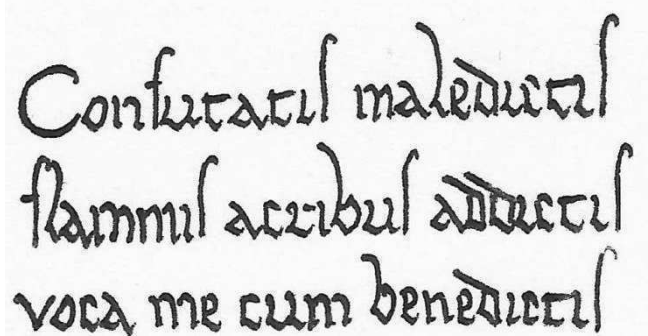 Confutatis maledictis
flammis acribus addictis
voca me cum benedictis